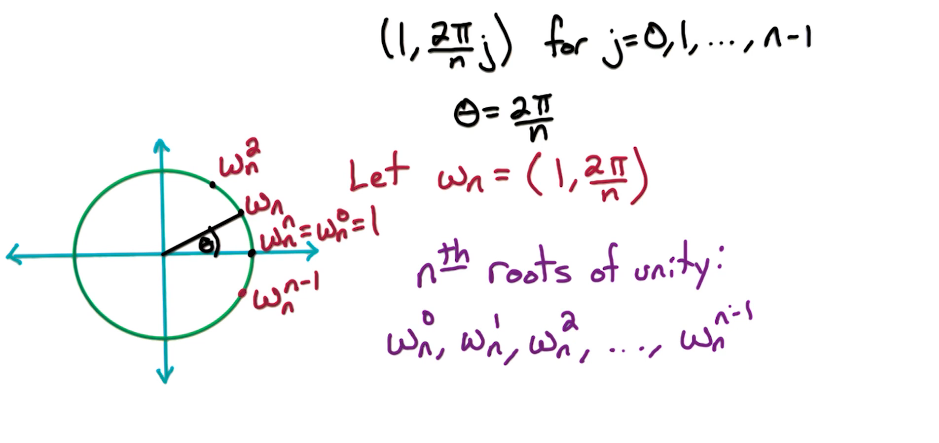 (1, 2π/n j) for j=0,1,...,n-1
θ = 2π/n
Let ωₙ = (1, 2π/n)
ωₙ²
ωₙ
ωₙⁿ = ωₙ⁰ = 1
θ
ωₙⁿ⁻¹
nᵗʰ roots of unity:
ωₙ⁰, ωₙ¹, ωₙ², ..., ωₙⁿ⁻¹